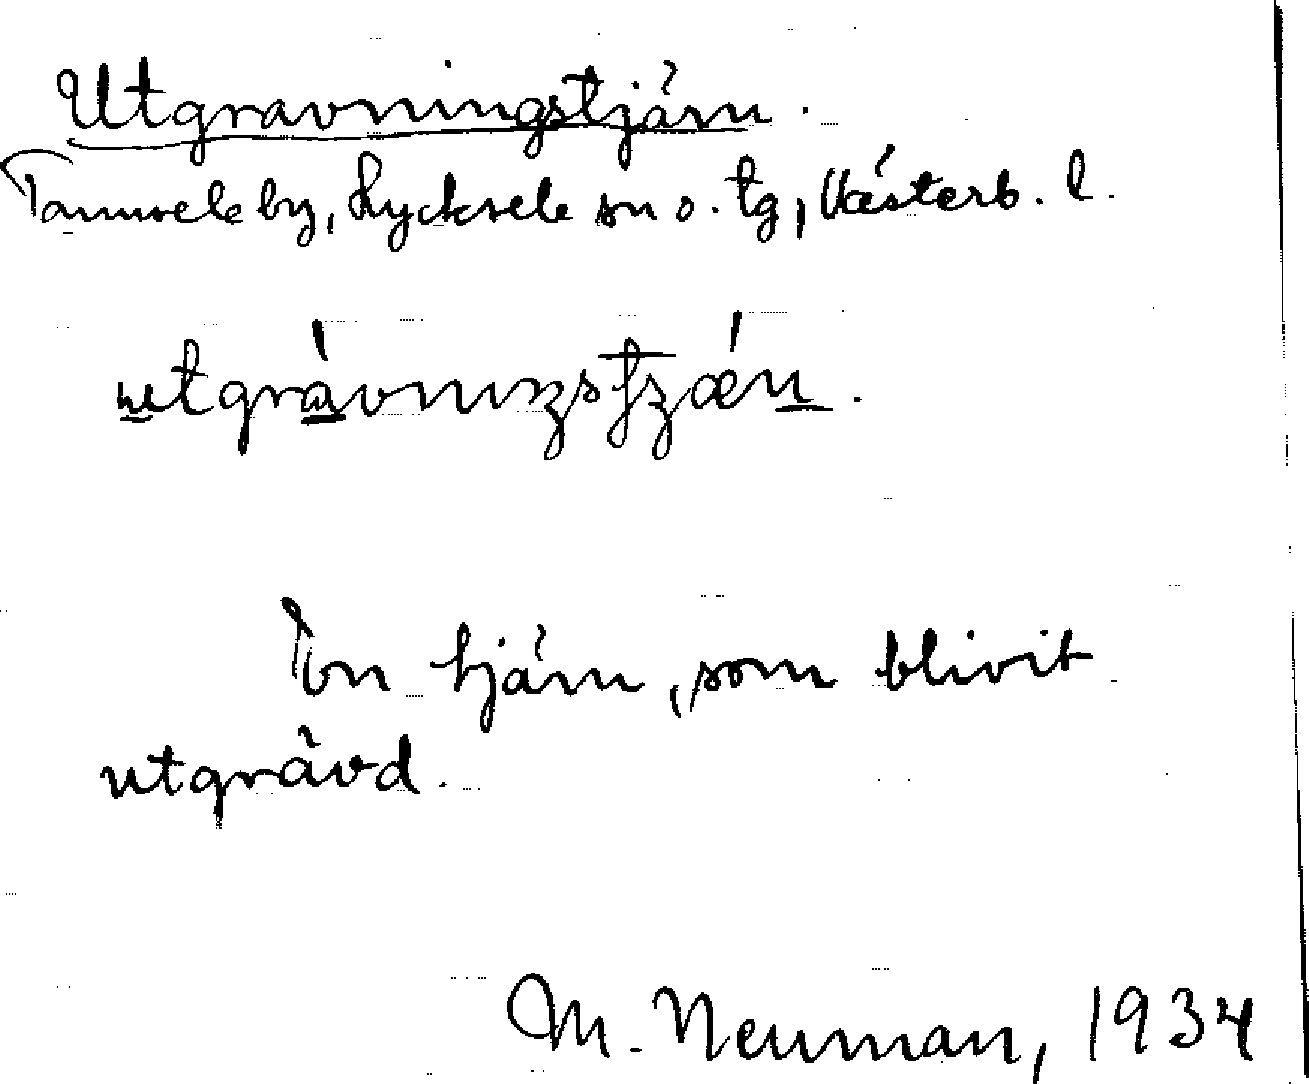 Utgravningstjärn.
Tannsele by, Lycksele sn o. tg, Västerb. l.
En tjärn, som blivit
utgrävd.
M. Neuman, 1934